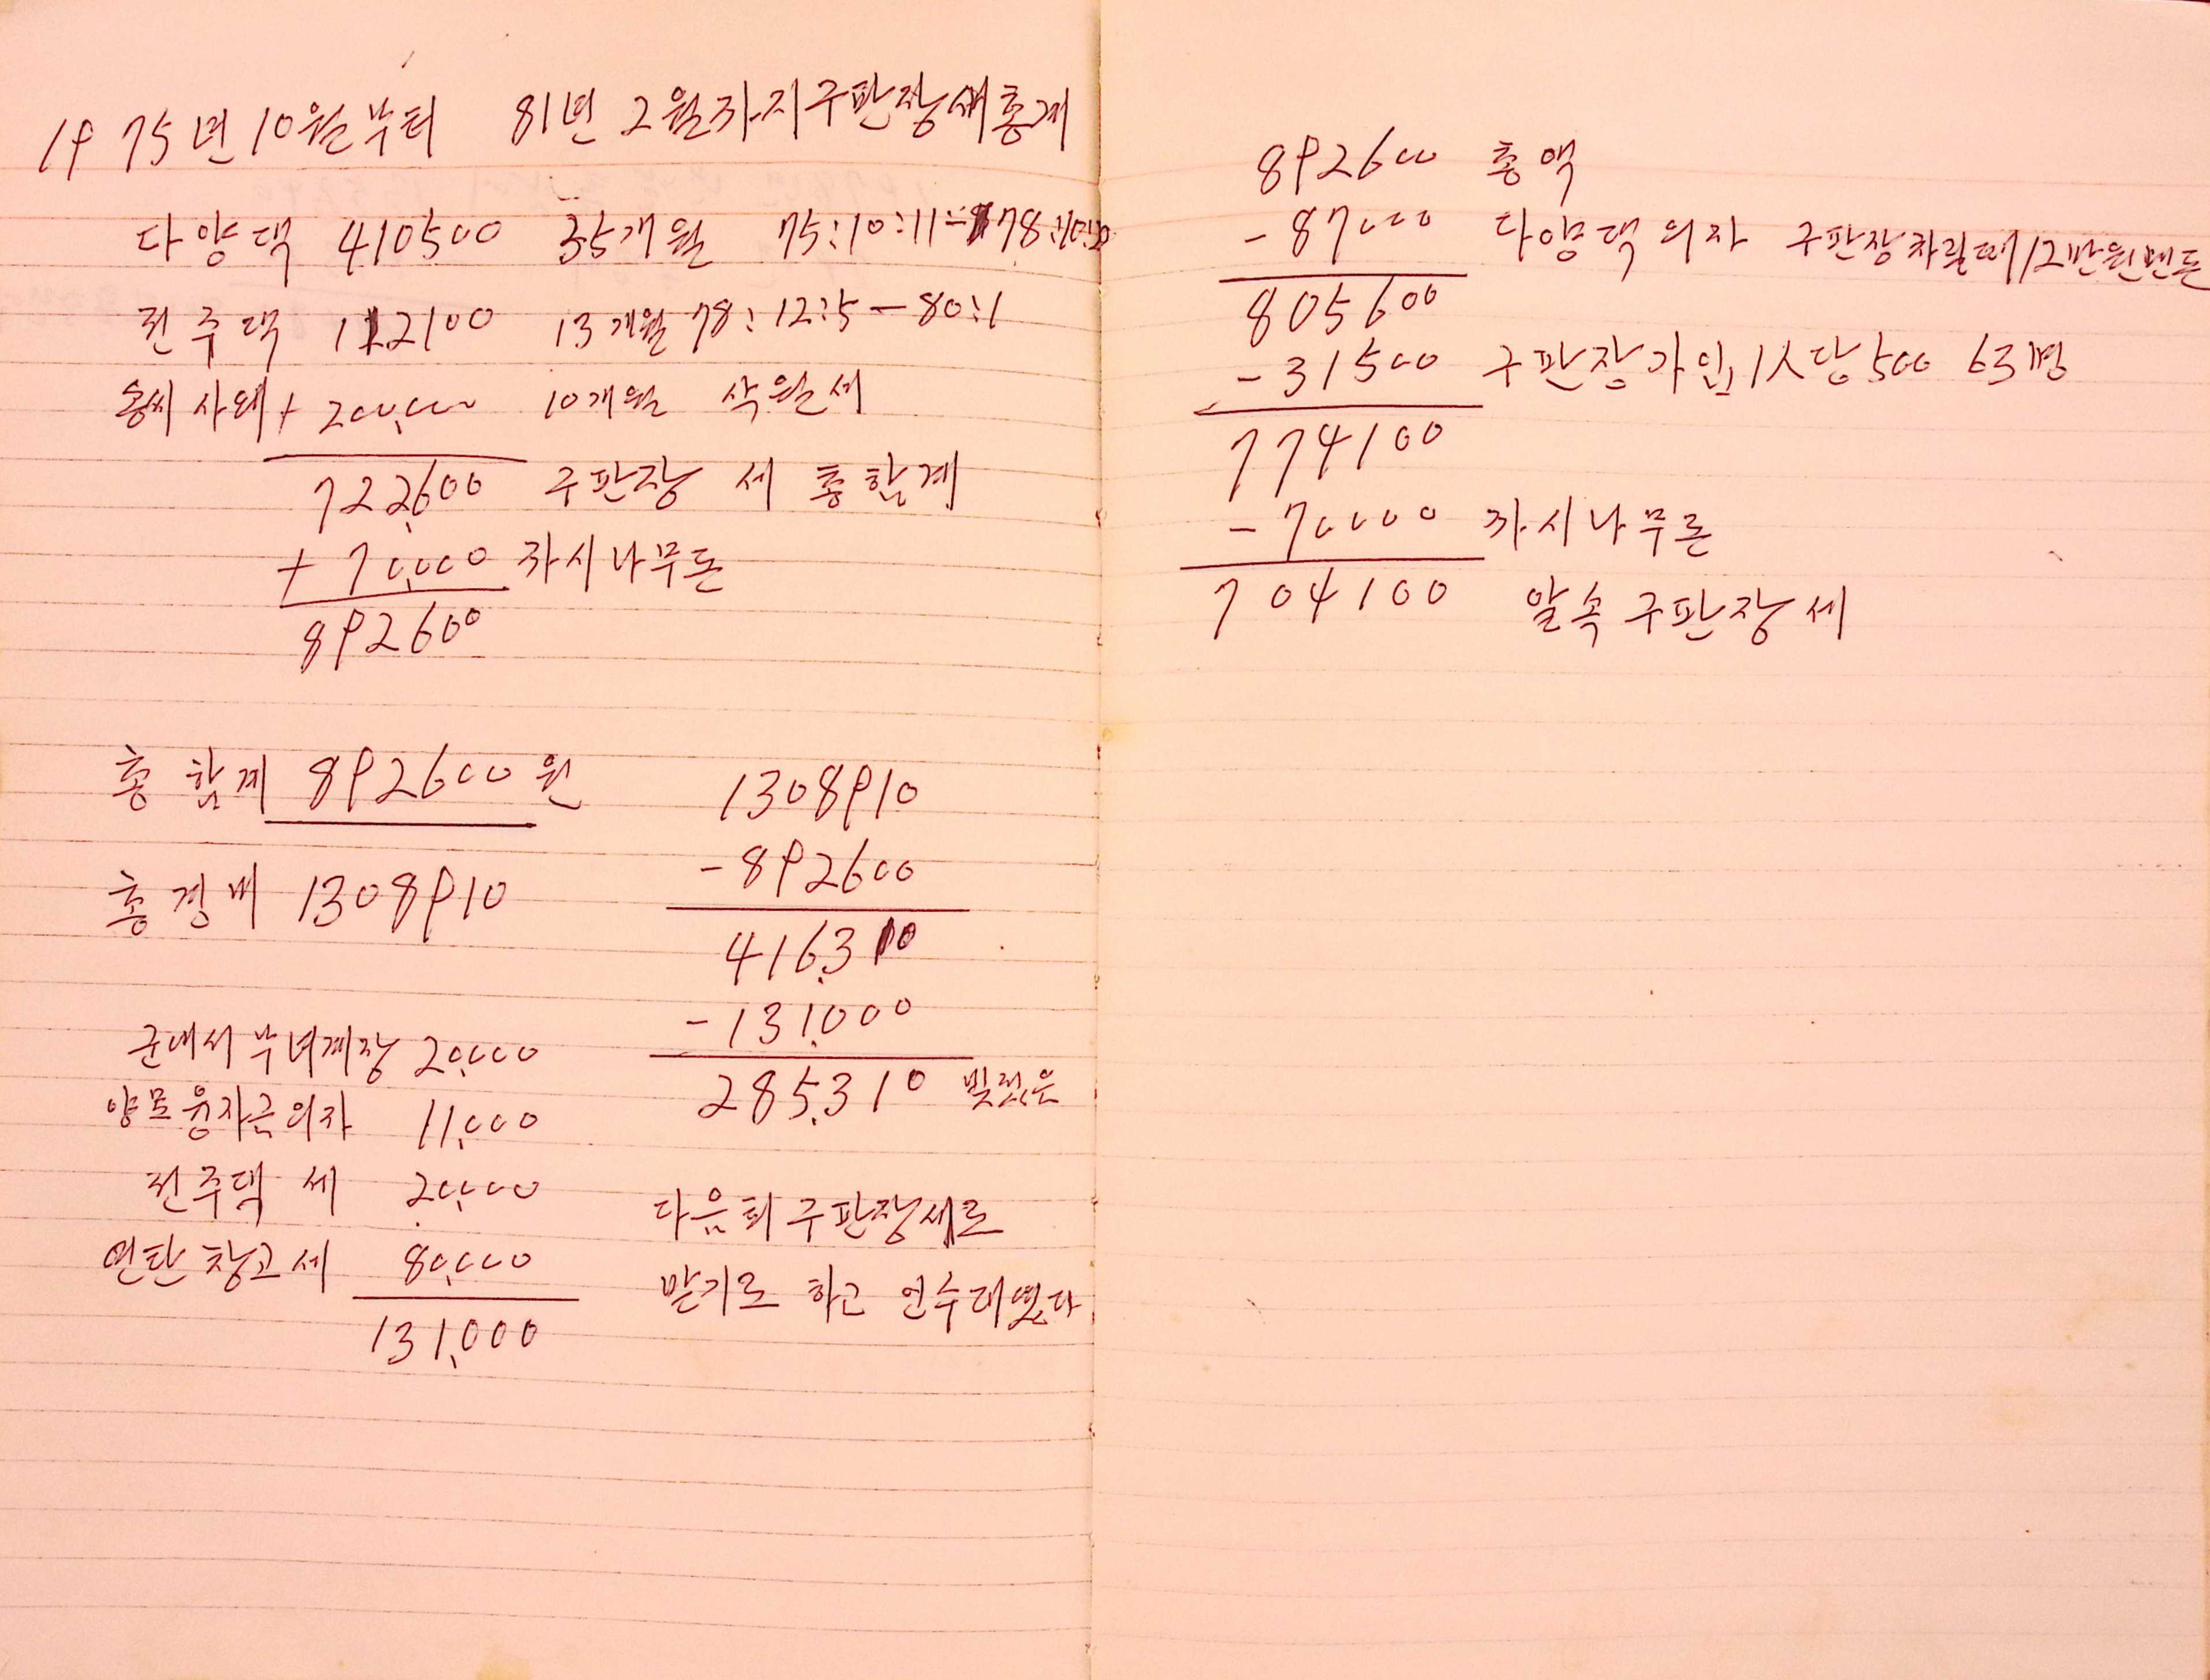 1975년 10월부터 81년 2월까지 구판장세 총계
다양댁 410500 35개월 75:10:11-78:10:
전주댁 112100 13개월 78:12:5-80:1
송씨 사위 + 200,000 10개월 삭월세
722,600 구판장 세 총합계
+ 70,000 까시나무돈
892600
총 합계 892600원
총경비 1308910
군내서 부녀계장 20,000
양모 융자금 의자 11,000
전주댁 세 20,000
연탄 창고세 80,000
131,000
1308910
- 892600
416,310
- 131,000
285,310 빚젔음
다음퇴 구판장세로
받기로 하고 연수대였다
892600 총액
- 87000 다양댁 의자 구판장차릴때 12만원변돈
805600
- 31500 구판장가입 1人당 500 63명
774100
- 70000 까시나무돈
704100 알속 구판장세